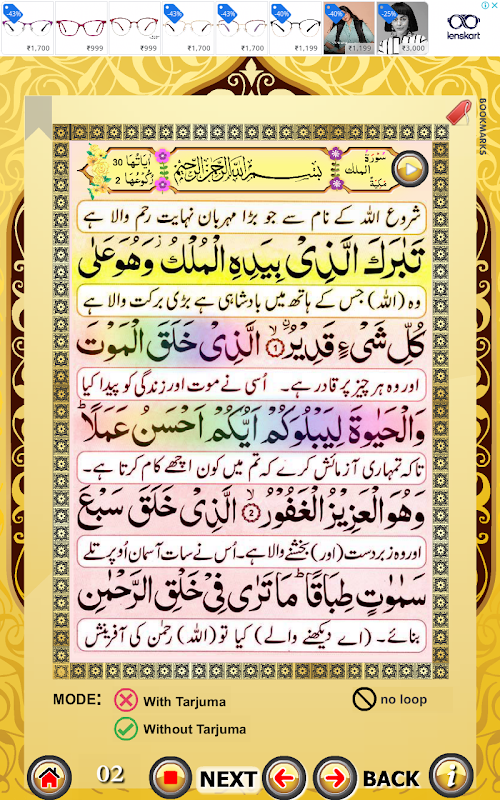 -43% -43% -43% -40% -40% -25%
₹1,700 ₹999 ₹999 ₹1,700 ₹1,700 ₹1,199 ₹1,199 ₹3,000
lenskart
BOOKMARKS
سُورَة الملك مَكِّيَّة
بِسْمِ اللّٰهِ الرَّحْمٰنِ الرَّحِيْمِ
اٰيَاتُهَا 30
رُكُوْعُهَا 2
شروع اللہ کے نام سے جو بڑا مہربان نہایت رحم والا ہے
تَبٰرَكَ الَّذِیْ بِیَدِهِ الْمُلْكُ٘ وَهُوَ عَلٰی
وہ (اللہ) جس کے ہاتھ میں بادشاہی ہے بڑی برکت والا ہے
كُلِّ شَیْءٍ قَدِیْرُ ۙ﴿1﴾ الَّذِیْ خَلَقَ الْمَوْتَ
اور وہ ہر چیز پر قادر ہے۔ اُسی نے موت اور زندگی کو پیدا کیا
وَالْحَیٰوةَ لِیَبْلُوَكُمْ اَیُّكُمْ اَحْسَنُ عَمَلًا ؕ
تاکہ تمہاری آزمائش کرے کہ تم میں کون اچھے کام کرتا ہے۔
وَهُوَ الْعَزِیْزُ الْغَفُوْرُ ۙ﴿2﴾ الَّذِیْ خَلَقَ سَبْعَ
اور وہ زبردست (اور) بخشنے والا ہے۔ اُس نے سات آسمان اُوپر تلے
سَمٰوٰتٍ طِبَاقًا ؕ مَا تَرٰی فِیْ خَلْقِ الرَّحْمٰنِ
بنائے۔ (اے دیکھنے والے) کیا تو (اللہ) رحمٰن کی آفرینش
MODE: With Tarjuma no loop
Without Tarjuma
02 NEXT BACK i